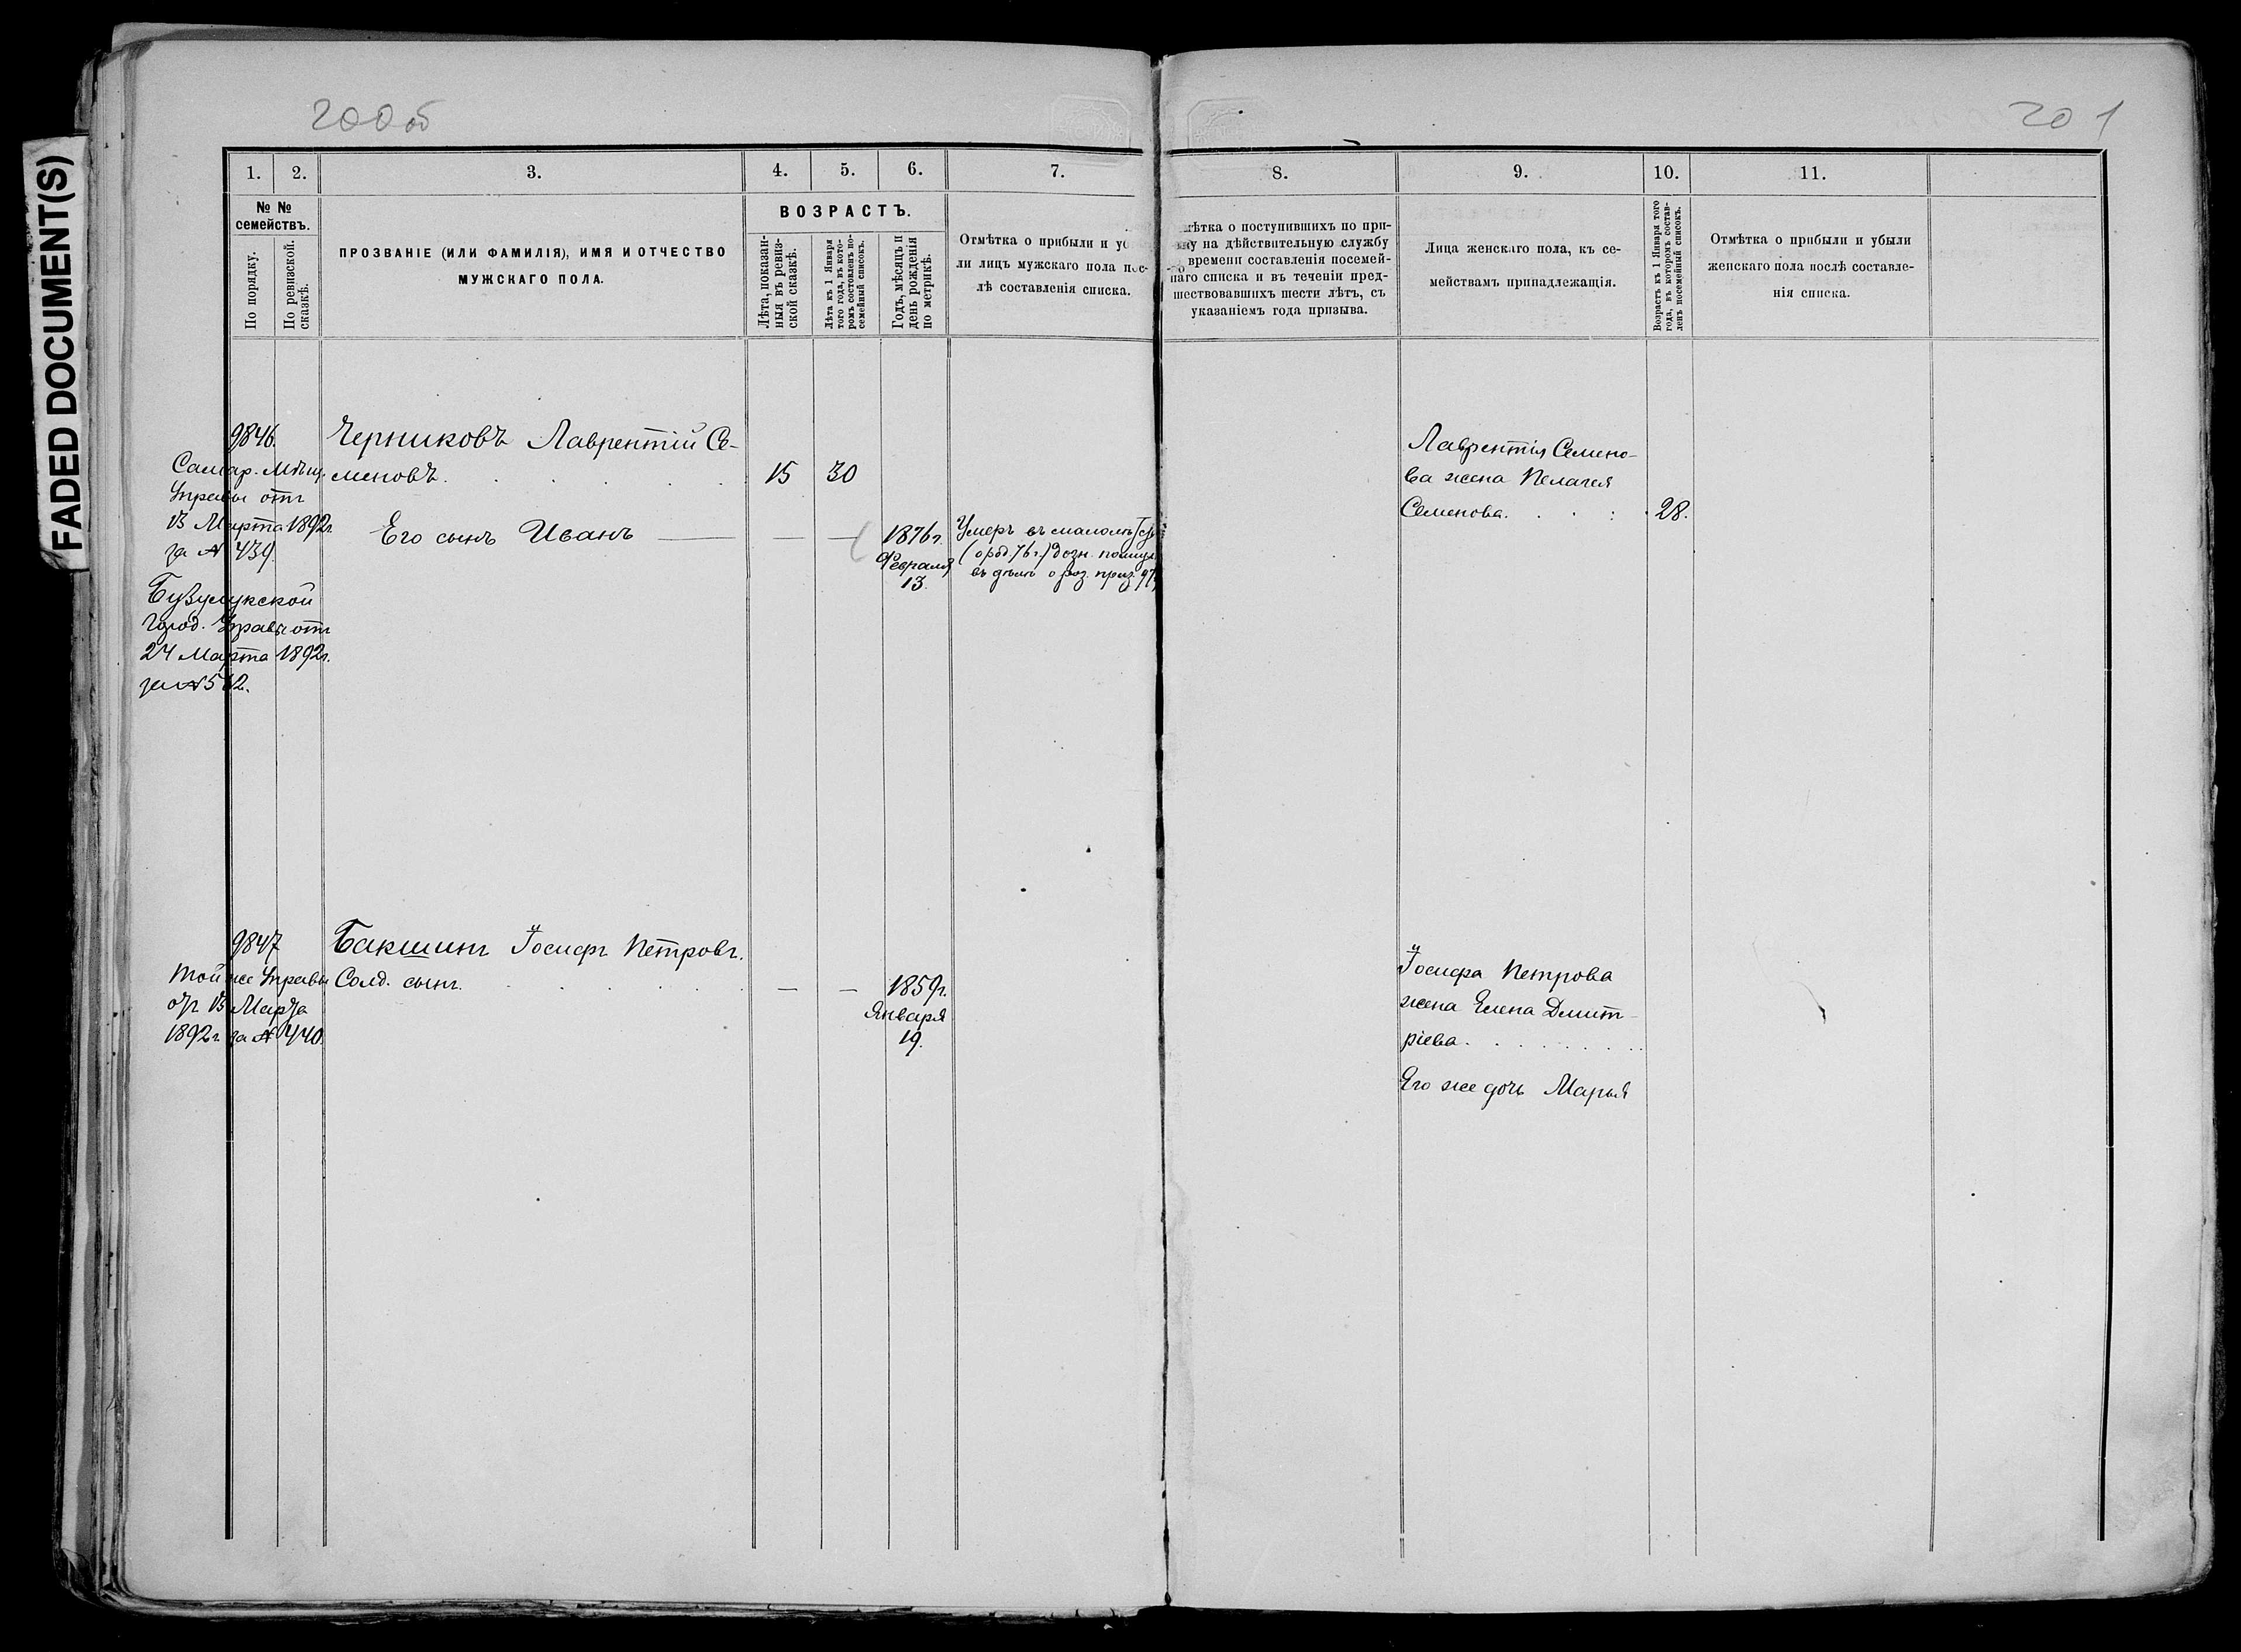 FADED DOCUMENT(S)
200 об
201
1.
2.
3.
4.
5.
6.
7.
8.
9.
10.
11.
№ №
семействъ.
По порядку.
По ревизской
сказкѣ.
ПРОЗВАНІЕ (ИЛИ ФАМИЛІЯ), ИМЯ И ОТЧЕСТВО
МУЖСКАГО ПОЛА.
ВОЗРАСТЪ.
Лѣта, показан-
ныя въ ревиз-
ской сказкѣ.
Лѣта къ 1 Января
того года, въ кото-
ромъ составленъ по-
семейный списокъ.
Годъ, мѣсяцъ и
день рожденія
по метрикѣ.
Отмѣтка о прибыли и у
ли лицъ мужскаго пола пос-
лѣ составленія списка.
мѣтка о поступившихъ по при-
ву на дѣйствительную службу
времени составленія посемей-
наго списка и въ теченіи пред-
шествовавшихъ шести лѣтъ, съ
указаніемъ года призыва.
Лица женскаго пола, къ се-
мействамъ принадлежащія.
Возрастъ къ 1 Января того
года, въ которомъ состав-
ленъ посемейный списокъ.
Отмѣтка о прибыли и убыли
женскаго пола послѣ составле-
нія списка.
9846.
Самар. Мѣщ.
Управы отъ
13 Марта 1892г.
за № 439.
Бузулукской
Город. Управы отъ
24 Марта 1892г.
за № 512.
Черниковъ Лаврентій Се-
меновъ. 15 30
Его сынъ Иванъ — — —
1876г.
Февраля
13.
Умеръ въ малол
(о род. 76 г.) дозн.
въ дѣлѣ о
Лаврентія Семено-
ва жена Пелагея
Семенова. 28.
9847
Той же Управы
отъ 13 Марта
1892г. за № 440.
Бакшинъ Іосифъ Петровъ.
Солд. сынъ. — —
1859г.
Января
19.
Іосифа Петрова
жена Елена Дмит-
ріева.
Его же дочь Марья